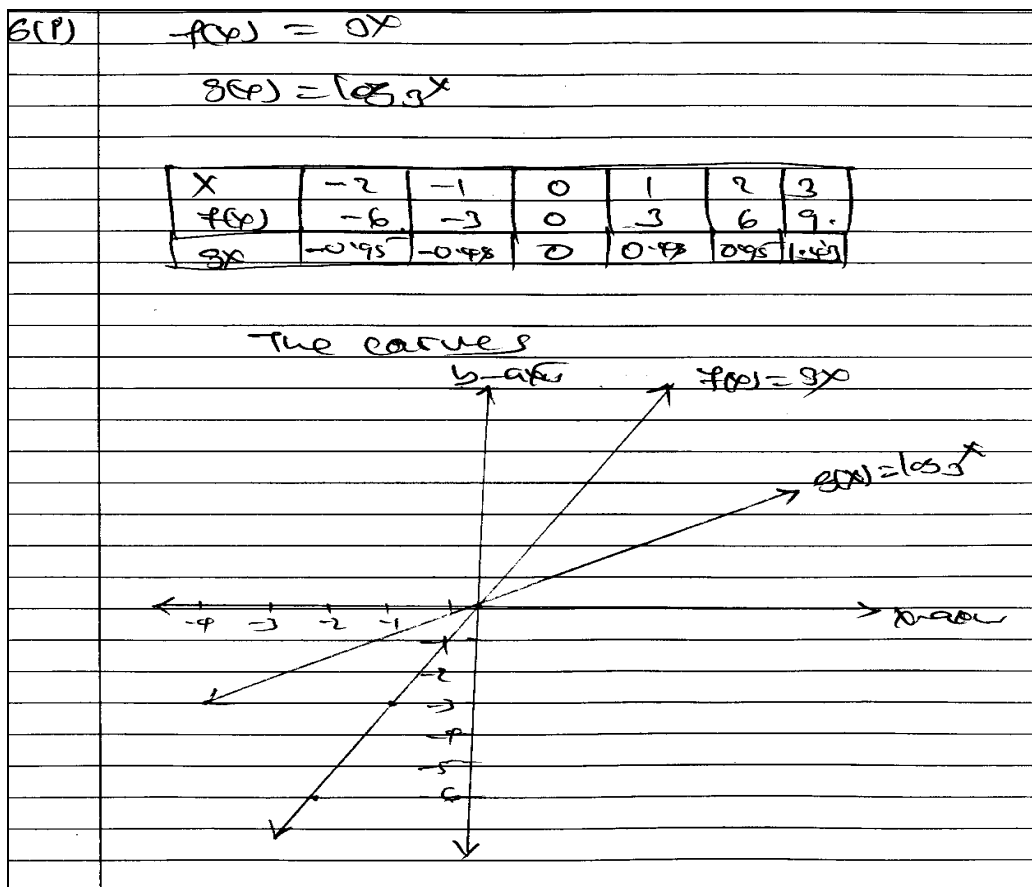 6(i) f(x) = 3x
g(x) = log 3^x
X -2 -1 0 1 2 3
f(x) -6 -3 0 3 6 9.
gx -0.95 -0.48 0 0.48 0.95 1.43
The curves
y-axis f(x) = 3x
g(x) = log 3^x
-4 -3 -2 -1 x-axis
-1
-2
-3
-4
-5
-6